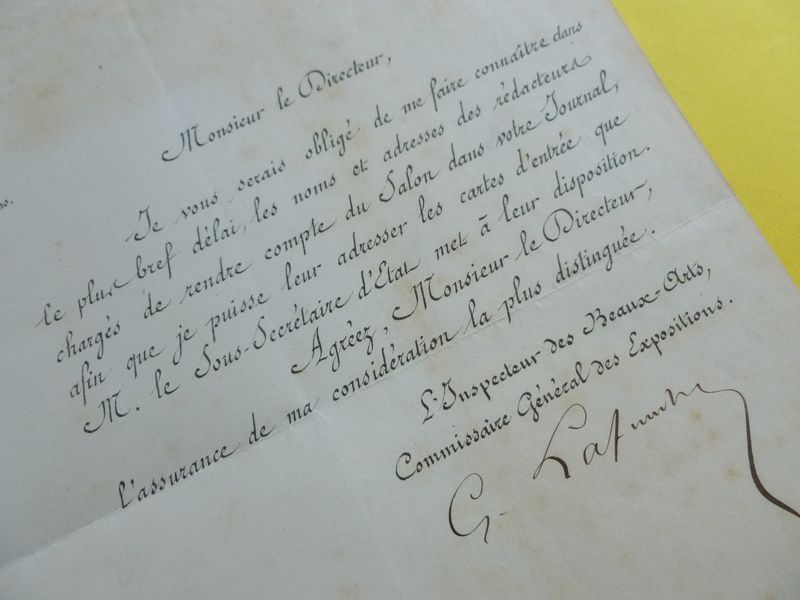 Monsieur le Directeur,
Je vous serais obligé de me faire connaître dans
le plus bref délai, les noms et adresses des rédacteurs
chargés de rendre compte du Salon dans votre Journal,
afin que je puisse leur adresser les cartes d'entrée que
M. le Sous-Secrétaire d'Etat met à leur disposition.
Agréez, Monsieur le Directeur,
l'assurance de ma considération la plus distinguée.
L'Inspecteur des Beaux-Arts,
Commissaire Général des Expositions.
G. Lafenestre